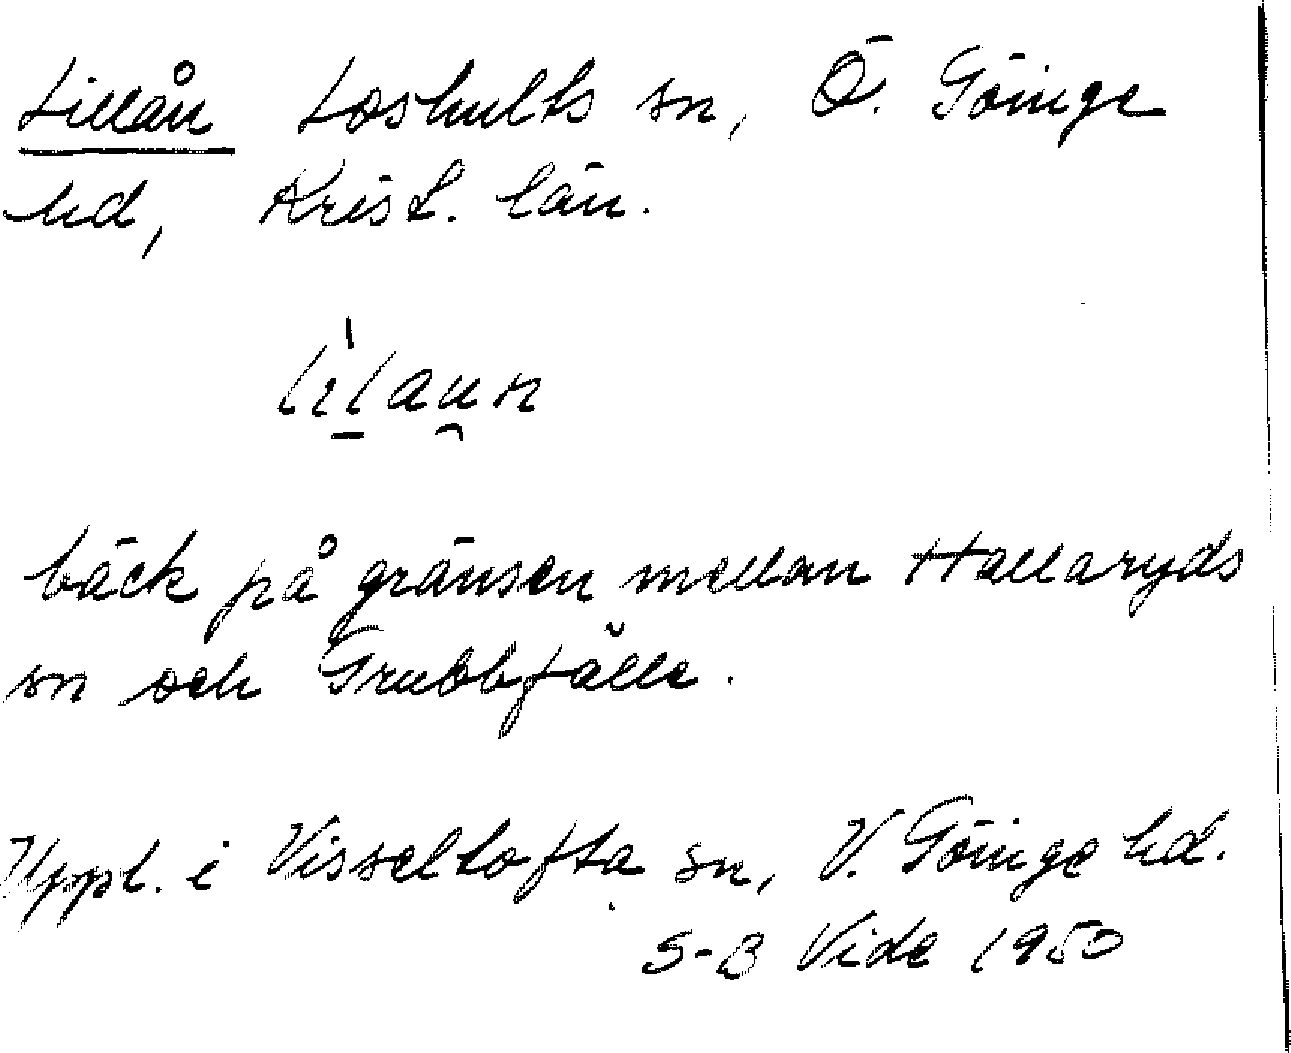 Lillån Loshults sn, Ö. Göinge
hd, Krist. län.
lìlau̯n
bäck på gränsen mellan Hallaryds
sn och Grubbfälle.
Uppt. i Visseltofta sn, V. Göinge hd.
S-B Vide 1950